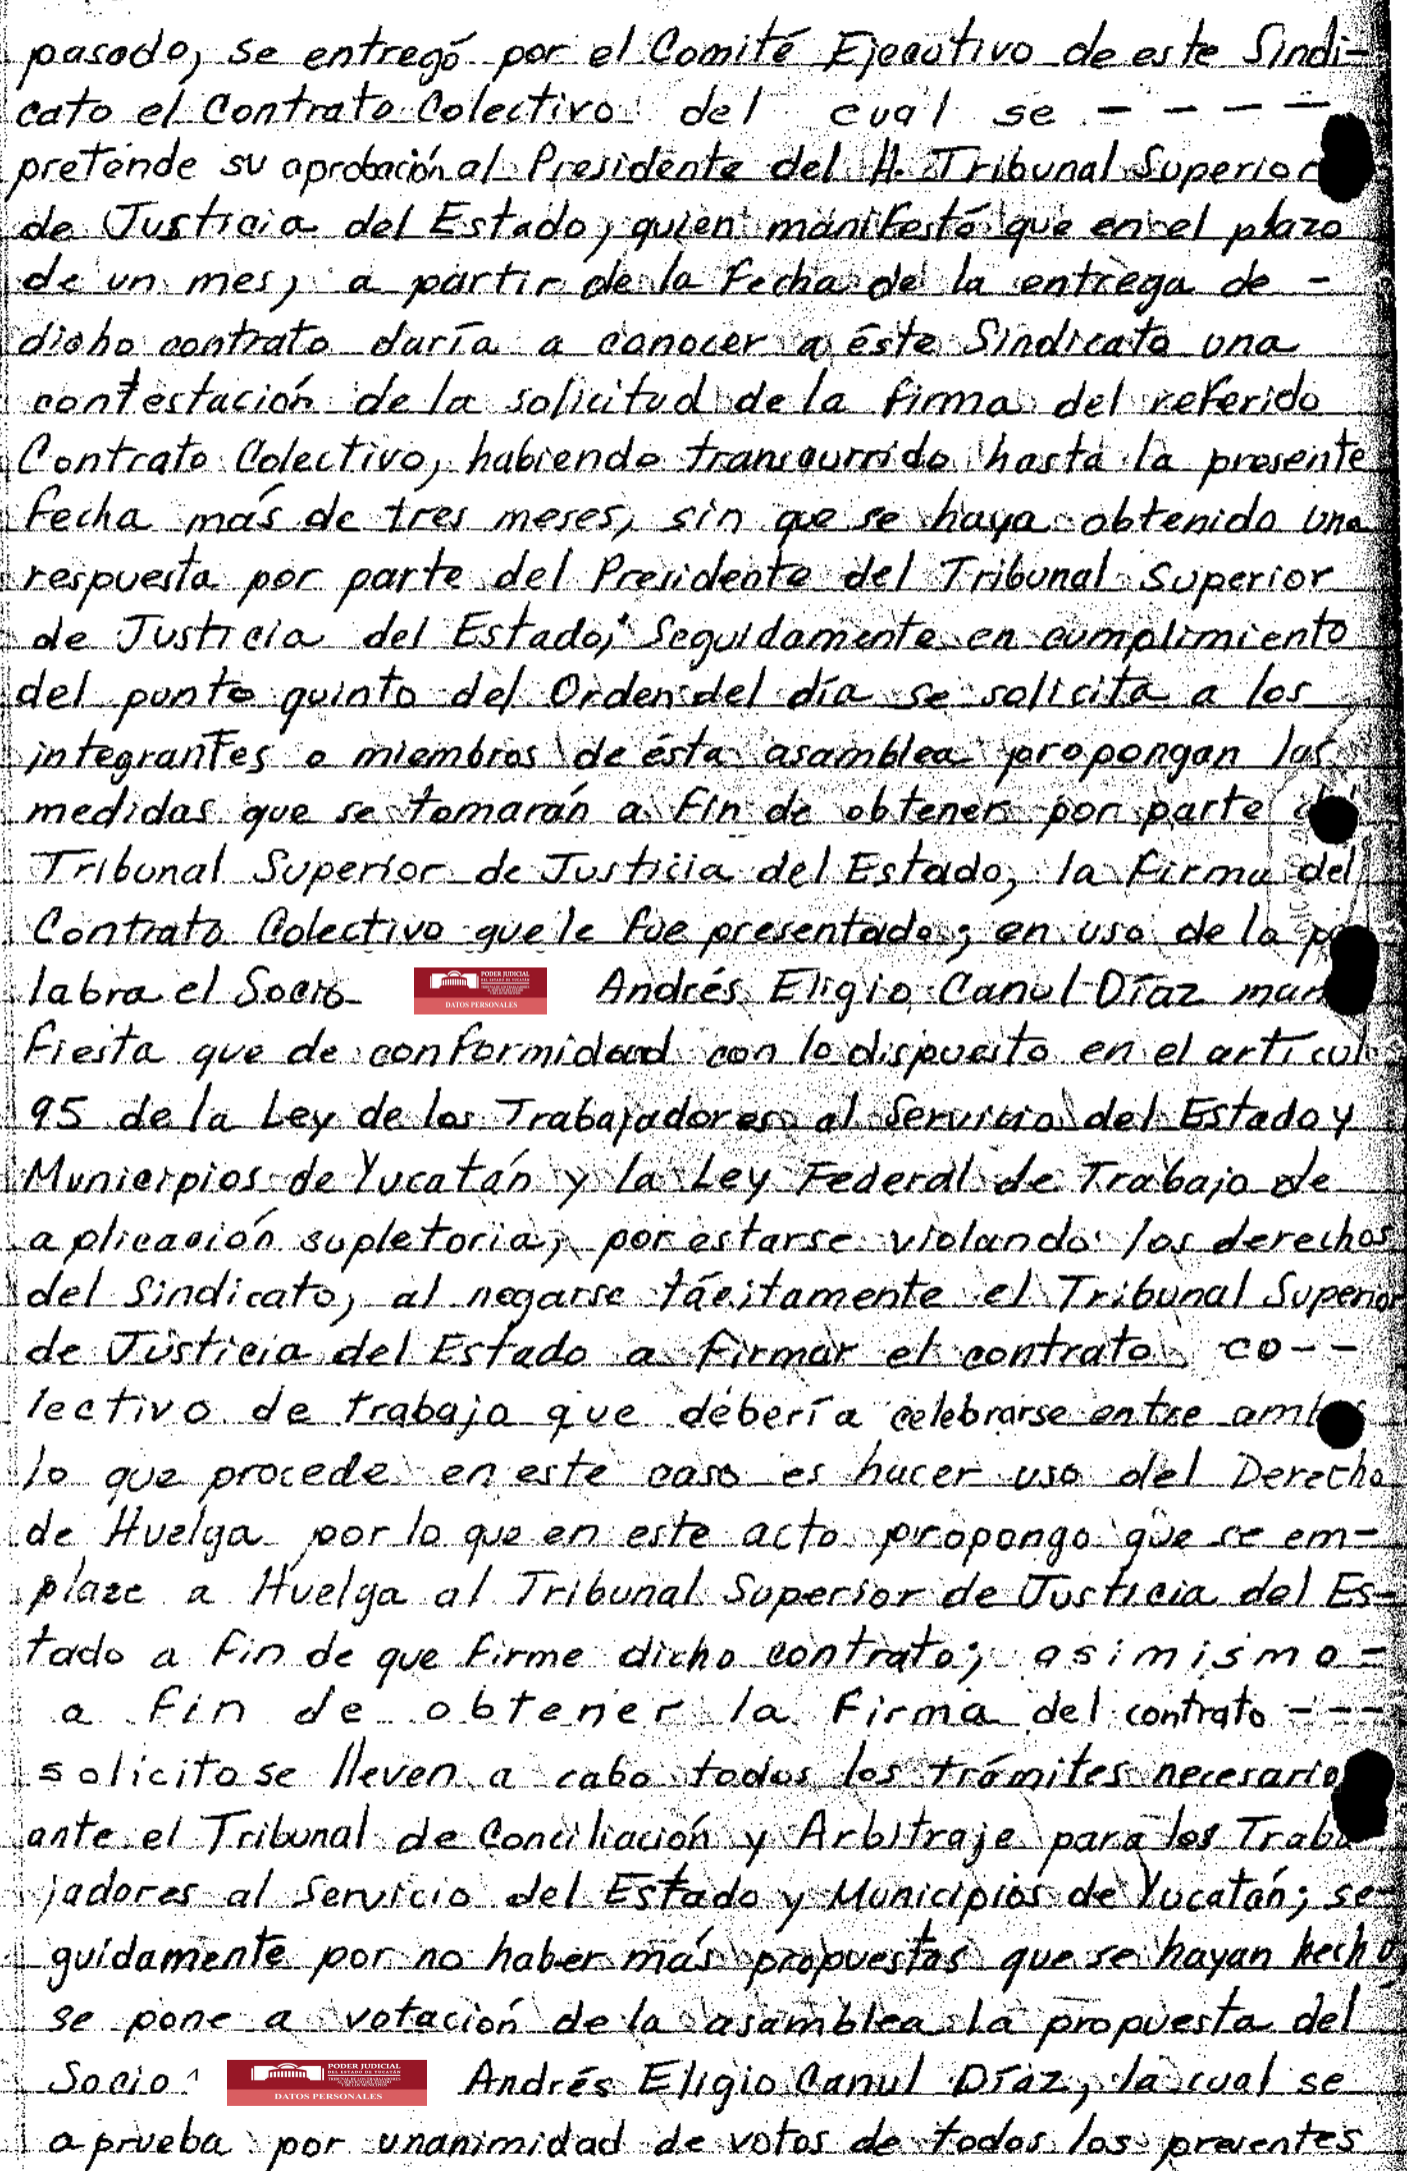 pasado, se entregó por el Comité Ejecutivo de este Sindi-
cato el Contrato Colectivo del cual se - - - -
preténde su aprobación al Presidente del H. Tribunal Superior
de Justicia del Estado, quien manifestó que en el plazo
de un mes, a partir de la fecha de la entrega de -
dicho contrato daría a conocer a éste Sindicato una
contestación de la solicitud de la firma del referido
Contrato Colectivo, habiendo transcurrido hasta la presente
fecha más de tres meses, sin que se haya obtenido una
respuesta por parte del Presidente del Tribunal Superior
de Justicia del Estado; Seguidamente en cumplimiento
del punto quinto del Orden del día se solicita a los
integrantes o miembros de ésta asamblea propongan las
medidas que se tomarán a fin de obtener por parte
Tribunal Superior de Justicia del Estado, la firma del
Contrato Colectivo que le fue presentado; en uso de la pa
labra el Socio PODER JUDICIAL DEL ESTADO DE YUCATÁN DATOS PERSONALES Andrés Eligio Canul Díaz mani
fiesta que de conformidad con lo dispuesto en el artícul
95 de la Ley de los Trabajadores al Servicio del Estado y
Municipios de Yucatán y la Ley Federal de Trabajo de
aplicación supletoria, por estarse violando los derechos
del Sindicato, al negarse tácitamente el Tribunal Superior
de Justicia del Estado a firmar el contrato co--
lectivo de trabajo que debería celebrarse entre ambos
lo que procede en este caso es hacer uso del Derecho
de Huelga por lo que en este acto propongo que se em-
place a Huelga al Tribunal Superior de Justicia del Es-
tado a fin de que firme dicho contrato; asimismo -
a fin de obtener la firma del contrato - - -
solicito se lleven a cabo todos los trámites necesarios
ante el Tribunal de Conciliación y Arbitraje para los Traba
jadores al Servicio del Estado y Municipios de Yucatán; se-
guidamente por no haber más propuestas que se hayan hecho,
se pone a votación de la asamblea la propuesta del
Socio PODER JUDICIAL DEL ESTADO DE YUCATÁN DATOS PERSONALES Andrés Eligio Canul Díaz, la cual se
aprueba por unanimidad de votos de todos los presentes